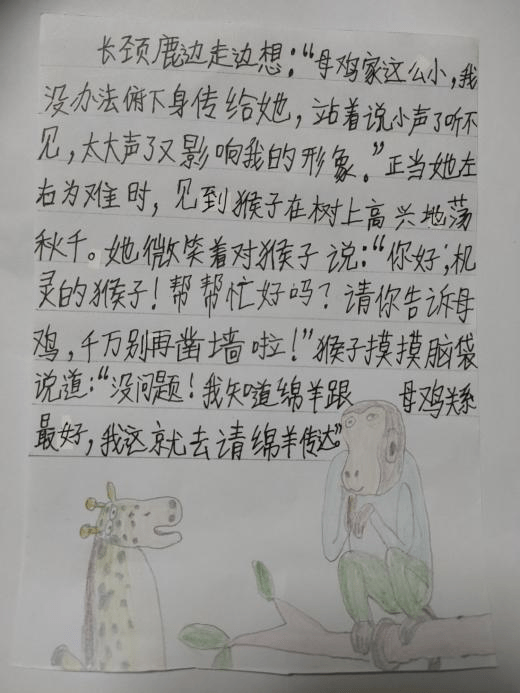 长颈鹿边走边想：“母鸡家这么小，我
没办法俯下身传给她，站着说小声了听不
见，太大声了又影响我的形象。”正当她左
右为难时，见到猴子在树上高兴地荡
秋千。她微笑着对猴子说：“你好，机
灵的猴子！帮帮忙好吗？请你告诉母
鸡，千万别再凿墙啦！”猴子摸摸脑袋
说道：“没问题！我知道绵羊跟 母鸡关系
最好，我这就去请绵羊传达。”